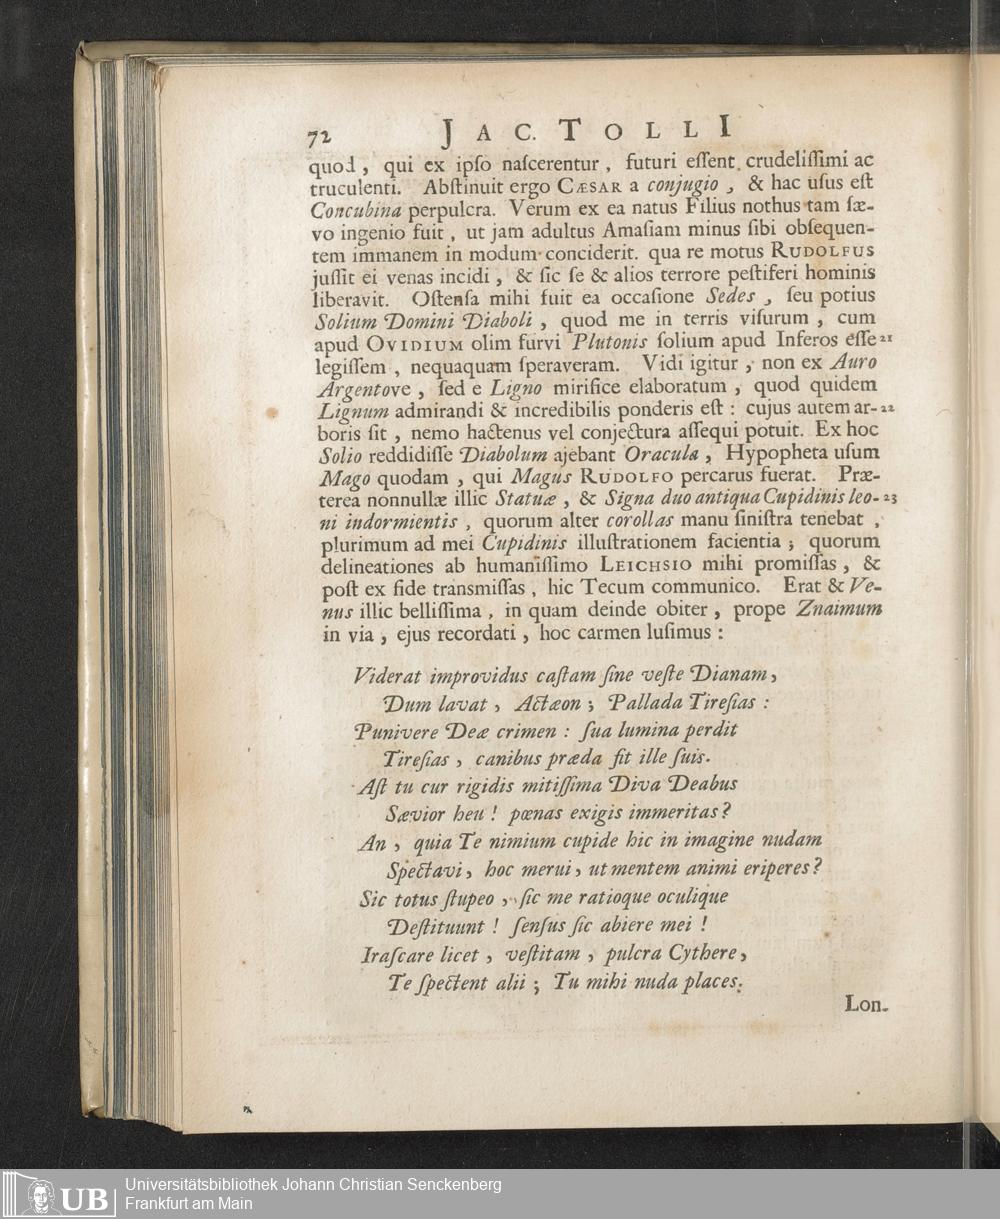 72 JAC. TOLLI
quod, qui ex ipſo naſcerentur, futuri eſſent crudeliſſimi ac
truculenti. Abſtinuit ergo CÆSAR a conjugio, & hac uſus eſt
Concubina perpulcra. Verum ex ea natus Filius nothus tam ſæ-
vo ingenio fuit, ut jam adultus Amaſiam minus ſibi obſequen-
tem immanem in modum conciderit. qua re motus RUDOLFUS
juſſit ei venas incidi, & ſic ſe & alios terrore peſtiferi hominis
liberavit. Oſtenſa mihi fuit ea occaſione Sedes, ſeu potius
Solium Domini Diaboli, quod me in terris viſurum, cum
apud OVIDIUM olim furvi Plutonis ſolium apud Inferos eſſe 21
legiſſem, nequaquam ſperaveram. Vidi igitur, non ex Auro
Argentove, ſed e Ligno mirifice elaboratum, quod quidem
Lignum admirandi & incredibilis ponderis eſt: cujus autem ar- 22
boris ſit, nemo hactenus vel conjectura aſſequi potuit. Ex hoc
Solio reddidiſſe Diabolum ajebant Oracula, Hypopheta uſum
Mago quodam, qui Magus RUDOLFO percarus fuerat. Præ-
terea nonnullæ illic Statuæ, & Signa duo antiqua Cupidinis leo- 23
ni indormientis, quorum alter corollas manu ſiniſtra tenebat,
plurimum ad mei Cupidinis illuſtrationem facientia; quorum
delineationes ab humaniſſimo LEICHSIO mihi promiſſas, &
poſt ex fide transmiſſas, hic Tecum communico. Erat & Ve-
nus illic belliſſima, in quam deinde obiter, prope Znaimum
in via, ejus recordati, hoc carmen luſimus:
Viderat improvidus caſtam ſine veſte Dianam,
Dum lavat, Actæon; Pallada Tireſias:
Punivere Deæ crimen: ſua lumina perdit
Tireſias, canibus præda fit ille ſuis.
Aſt tu cur rigidis mitiſſima Diva Deabus
Sævior heu! pœnas exigis immeritas?
An, quia Te nimium cupide hic in imagine nudam
Spectavi, hoc merui, ut mentem animi eriperes?
Sic totus ſtupeo, ſic me ratioque oculique
Deſtituunt! ſenſus ſic abiere mei!
Iraſcare licet, veſtitam, pulcra Cythere,
Te ſpectent alii; Tu mihi nuda places.
Lon-
UB Universitätsbibliothek Johann Christian Senckenberg
Frankfurt am Main